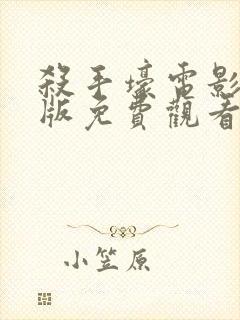 殺手壕電影
版免費觀看
小笠原